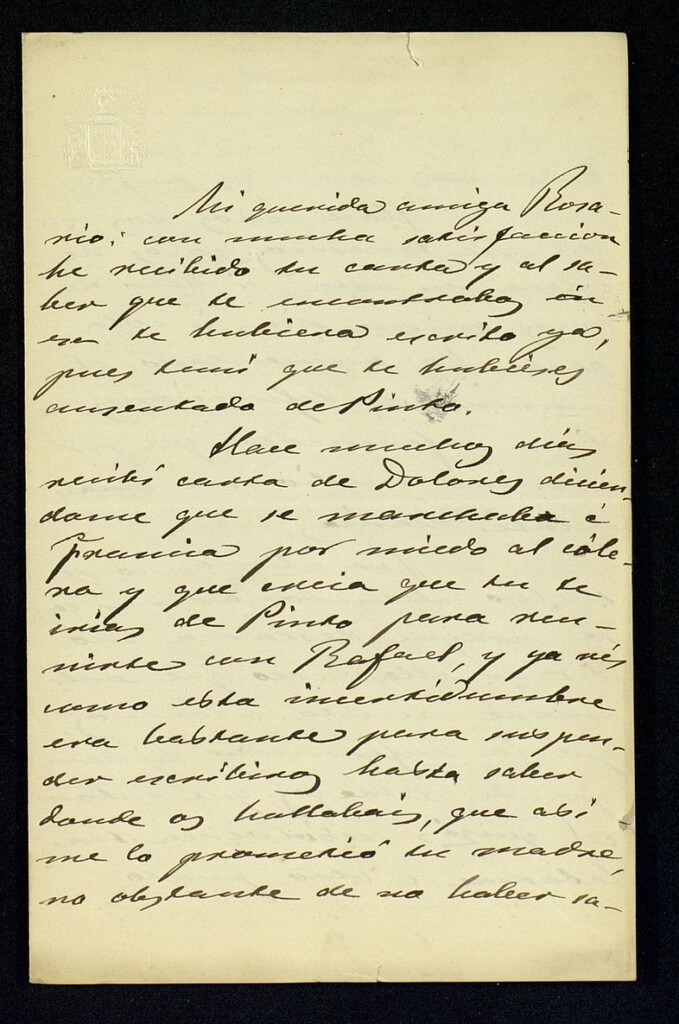 Mi querida amiga Rosa-
rio: con mucha satisfaccion
he recibido tu carta y al sa-
ber que te encontrabas en
esa te hubiera escrito ya,
pues temí que te hubieses
ausentado de Pinto.
Hace muchos dias
recibí carta de Dolores dicien-
dome que se marchaba á
Francia por miedo al cóle-
ra y que creia que tu te
irias de Pinto para reu-
nirte con Rafael, y ya vés
como esta incertidumbre
era bastante para suspen-
der escribiros hasta saber
donde os hallabais, que asi
me lo prometió tu madre,
no obstante de no haber sa-